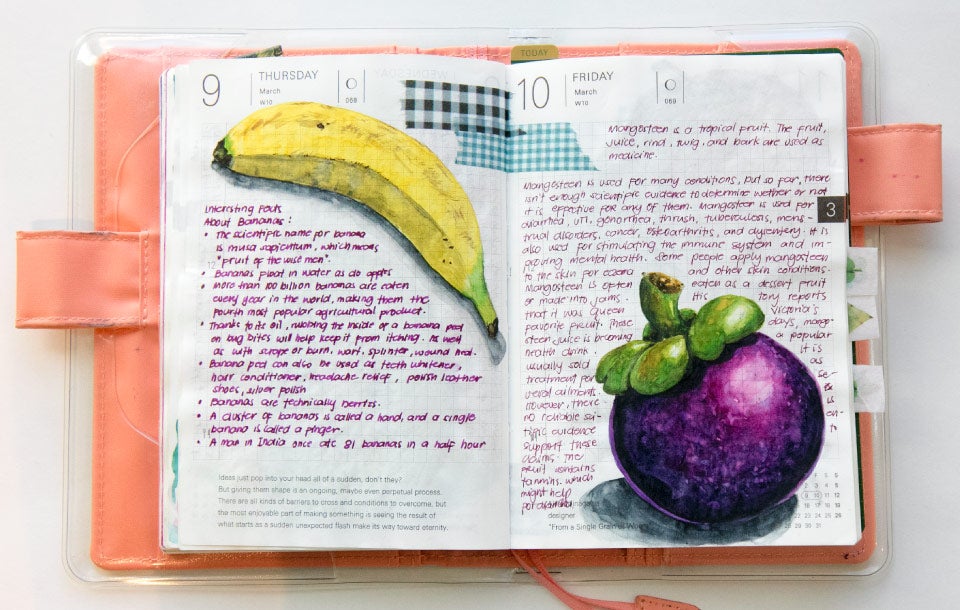 TODAY
9
THURSDAY
March
W10
068
WEDNESDAY
Interesting Facts
About Bananas:
• The scientific name for banana
is musa sapientum, which means
"fruit of the wise men".
• Bananas float in water as do apples
• More than 100 billion bananas are eaten
every year in the world, making them the
fourth most popular agricultural product.
• Thanks to its oil, rubbing the inside of a banana peel
on bug bites will help keep it from itching. As well
as with scrape or burn, wart, splinter, wound heal.
• Banana peel can also be used as teeth whitener,
hair conditioner, headache relief, polish leather
shoes, silver polish
• Bananas are technically berries.
• A cluster of bananas is called a hand, and a single
banana is called a finger.
• A man in India once ate 81 bananas in a half hour
Ideas just pop into your head all of a sudden, don't they?
But giving them shape is an ongoing, maybe even perpetual process.
There are all kinds of barriers to cross and conditions to overcome, but
the most enjoyable part of making something is seeing the result of
what starts as a sudden unexpected flash make its way toward eternity.
10
FRIDAY
March
W10
069
11
Mangosteen is a tropical fruit. The fruit,
juice, rind, twig, and bark are used as
medicine.
Mangosteen is used for many conditions, but so far, there
isn't enough scientific evidence to determine wether or not
it is effective for any of them. Mangosteen is used for
diarrhea, UTI, gonorrhea, thrush, tuberculosis, mens-
trual disorders, cancer, osteoarthritis, and dysentery. It is
also used for stimulating the immune system and im-
proving mental health. Some people apply mangosteen
to the skin for eczema and other skin conditions.
Mangosteen is often eaten as a dessert fruit
or made into jams. His tory reports
that it was Queen Victoria's
favorite fruit. These days, mango-
steen juice is becoming a popular
health drink. It is
usually sold as
treatment for se-
veral ailments.
However, there
no reliable sci- en-
tific evidence to
support these
claims. The
fruit contains
tannins. which
might help
for
3
designer
"From a Single Grain of